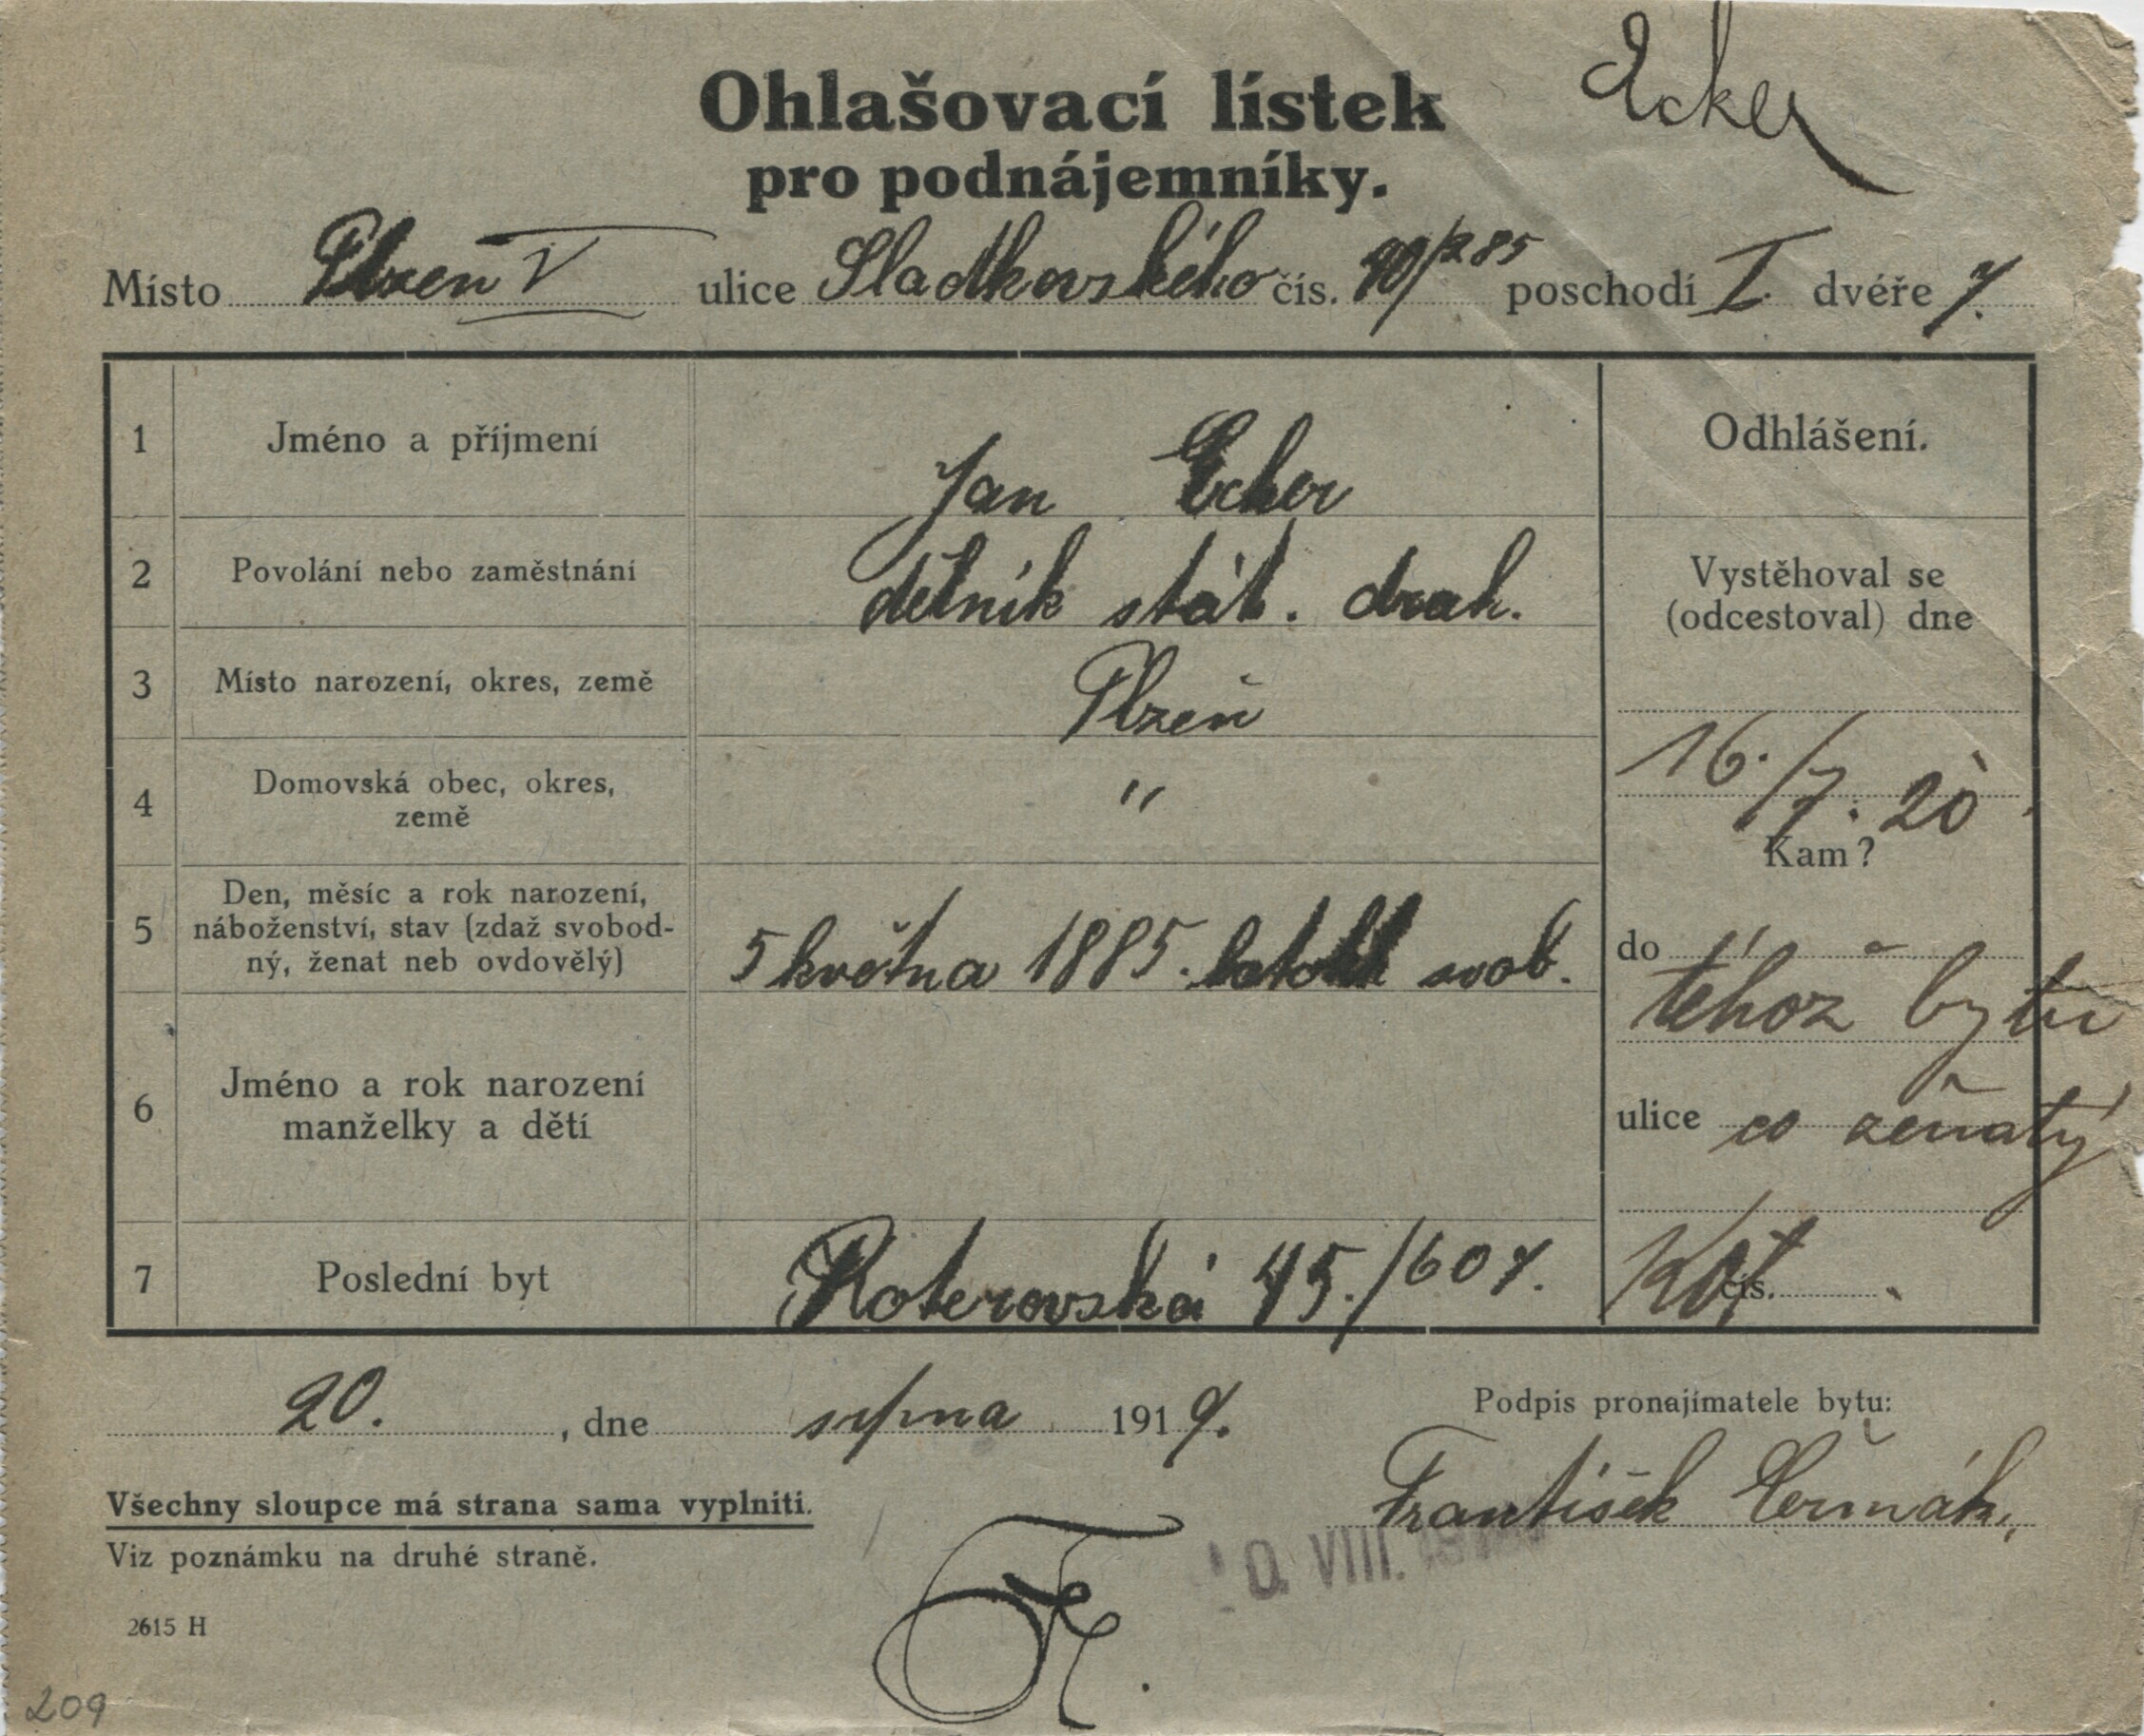 Ecker
Ohlašovací lístek
pro podnájemníky.
Místo Plzeň V ulice Sladkovského čís. 40/285 poschodí I. dvéře 7.
1 Jméno a příjmení Jan Ecker
Odhlášení.
2 Povolání nebo zaměstnání dělník stát. drah.
Vystěhoval se
(odcestoval) dne
16./7. 20
3 Místo narození, okres, země Plzeň
4 Domovská obec, okres,
země "
Kam?
5 Den, měsíc a rok narození,
náboženství, stav (zdaž svobod-
ný, ženat neb ovdovělý) 5 května 1885. svob.
do téhož bytu
6 Jméno a rok narození
manželky a dětí
ulice co ženatý
7 Poslední byt Koterovská 45./607.
čís.
20., dne srpna 1919.
Podpis pronajímatele bytu:
František Čermák
Všechny sloupce má strana sama vyplniti.
Viz poznámku na druhé straně.
0. VIII. 
2615 H
209